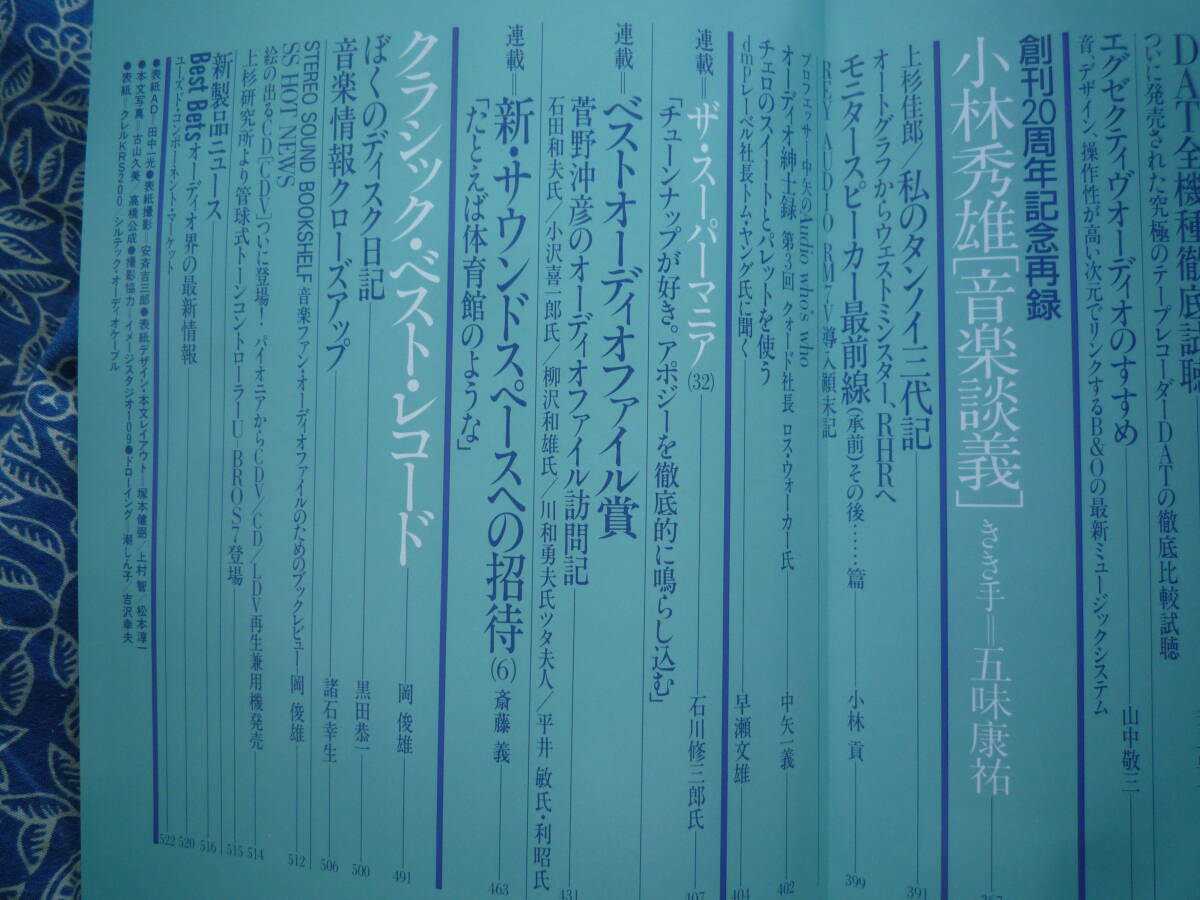 DAT全機種徹底試聴
ついに発売された究極のテープレコーダーDATの徹底比較試聴
エグゼクティヴオーディオのすすめ
音、デザイン、操作性が高い次元でリンクするB&Oの最新ミュージックシステム
山中敬三
創刊20周年記念再録
小林秀雄[音楽談義] きき手＝五味康祐
367
上杉佳郎/私のタンノイ三代記
オートグラフからウェストミンスター、RHRへ
391
モニタースピーカー最前線(承前)その後……篇
REY AUDIO RM7-V導入顛末記
小林 貢
399
プロフェッサー中矢のAudio who's who
オーディオ紳士録 第3回 クォード社長 ロス・ウォーカー氏
中矢一義
402
チェロのスイートとパレットを使う
dmpレーベル社長トム・ヤング氏に聞く
早瀬文雄
404
連載＝ザ・スーパーマニア(32)
「チューンナップが好き。アポジーを徹底的に鳴らし込む」
石川修三郎氏
407
連載＝ベストオーディオファイル賞
菅野沖彦のオーディオファイル訪問記
431
石田和夫氏/小沢喜一郎氏/柳沢和雄氏/川和勇夫氏ツタ夫人/平井 敏氏・利昭氏
連載＝新・サウンドスペースへの招待(6) 斎藤 義
「たとえば体育館のような」
463
クラシック・ベスト・レコード 岡 俊雄 491
ぼくのディスク日記 黒田恭一 500
音楽情報クローズアップ 諸石幸生 506
STEREO SOUND BOOKSHELF 音楽ファン・オーディオファイルのためのブックレビュー 岡 俊雄 512
SS HOT NEWS
絵の出るCD[CDV]ついに登場! パイオニアからCDV/CD/LDV再生兼用機発売 514
上杉研究所より管球式トーンコントローラーU・BROS7登場 515
新製品ニュース 516
Best Betsオーディオ界の最新情報 520
ユーズド・コンポーネント・マーケット 522
●表紙AD―田中一光●表紙撮影＝安斉吉三郎●表紙デザイン・本文レイアウト―塚本健弼/上村 智/松本淳一
●本文写真＝古山久美/高橋公成●撮影協力―イメージスタジオ109●ドローイング―瀬しん子/吉沢幸夫
●表紙―クレルKRS200 シルテック・オーディオケーブル